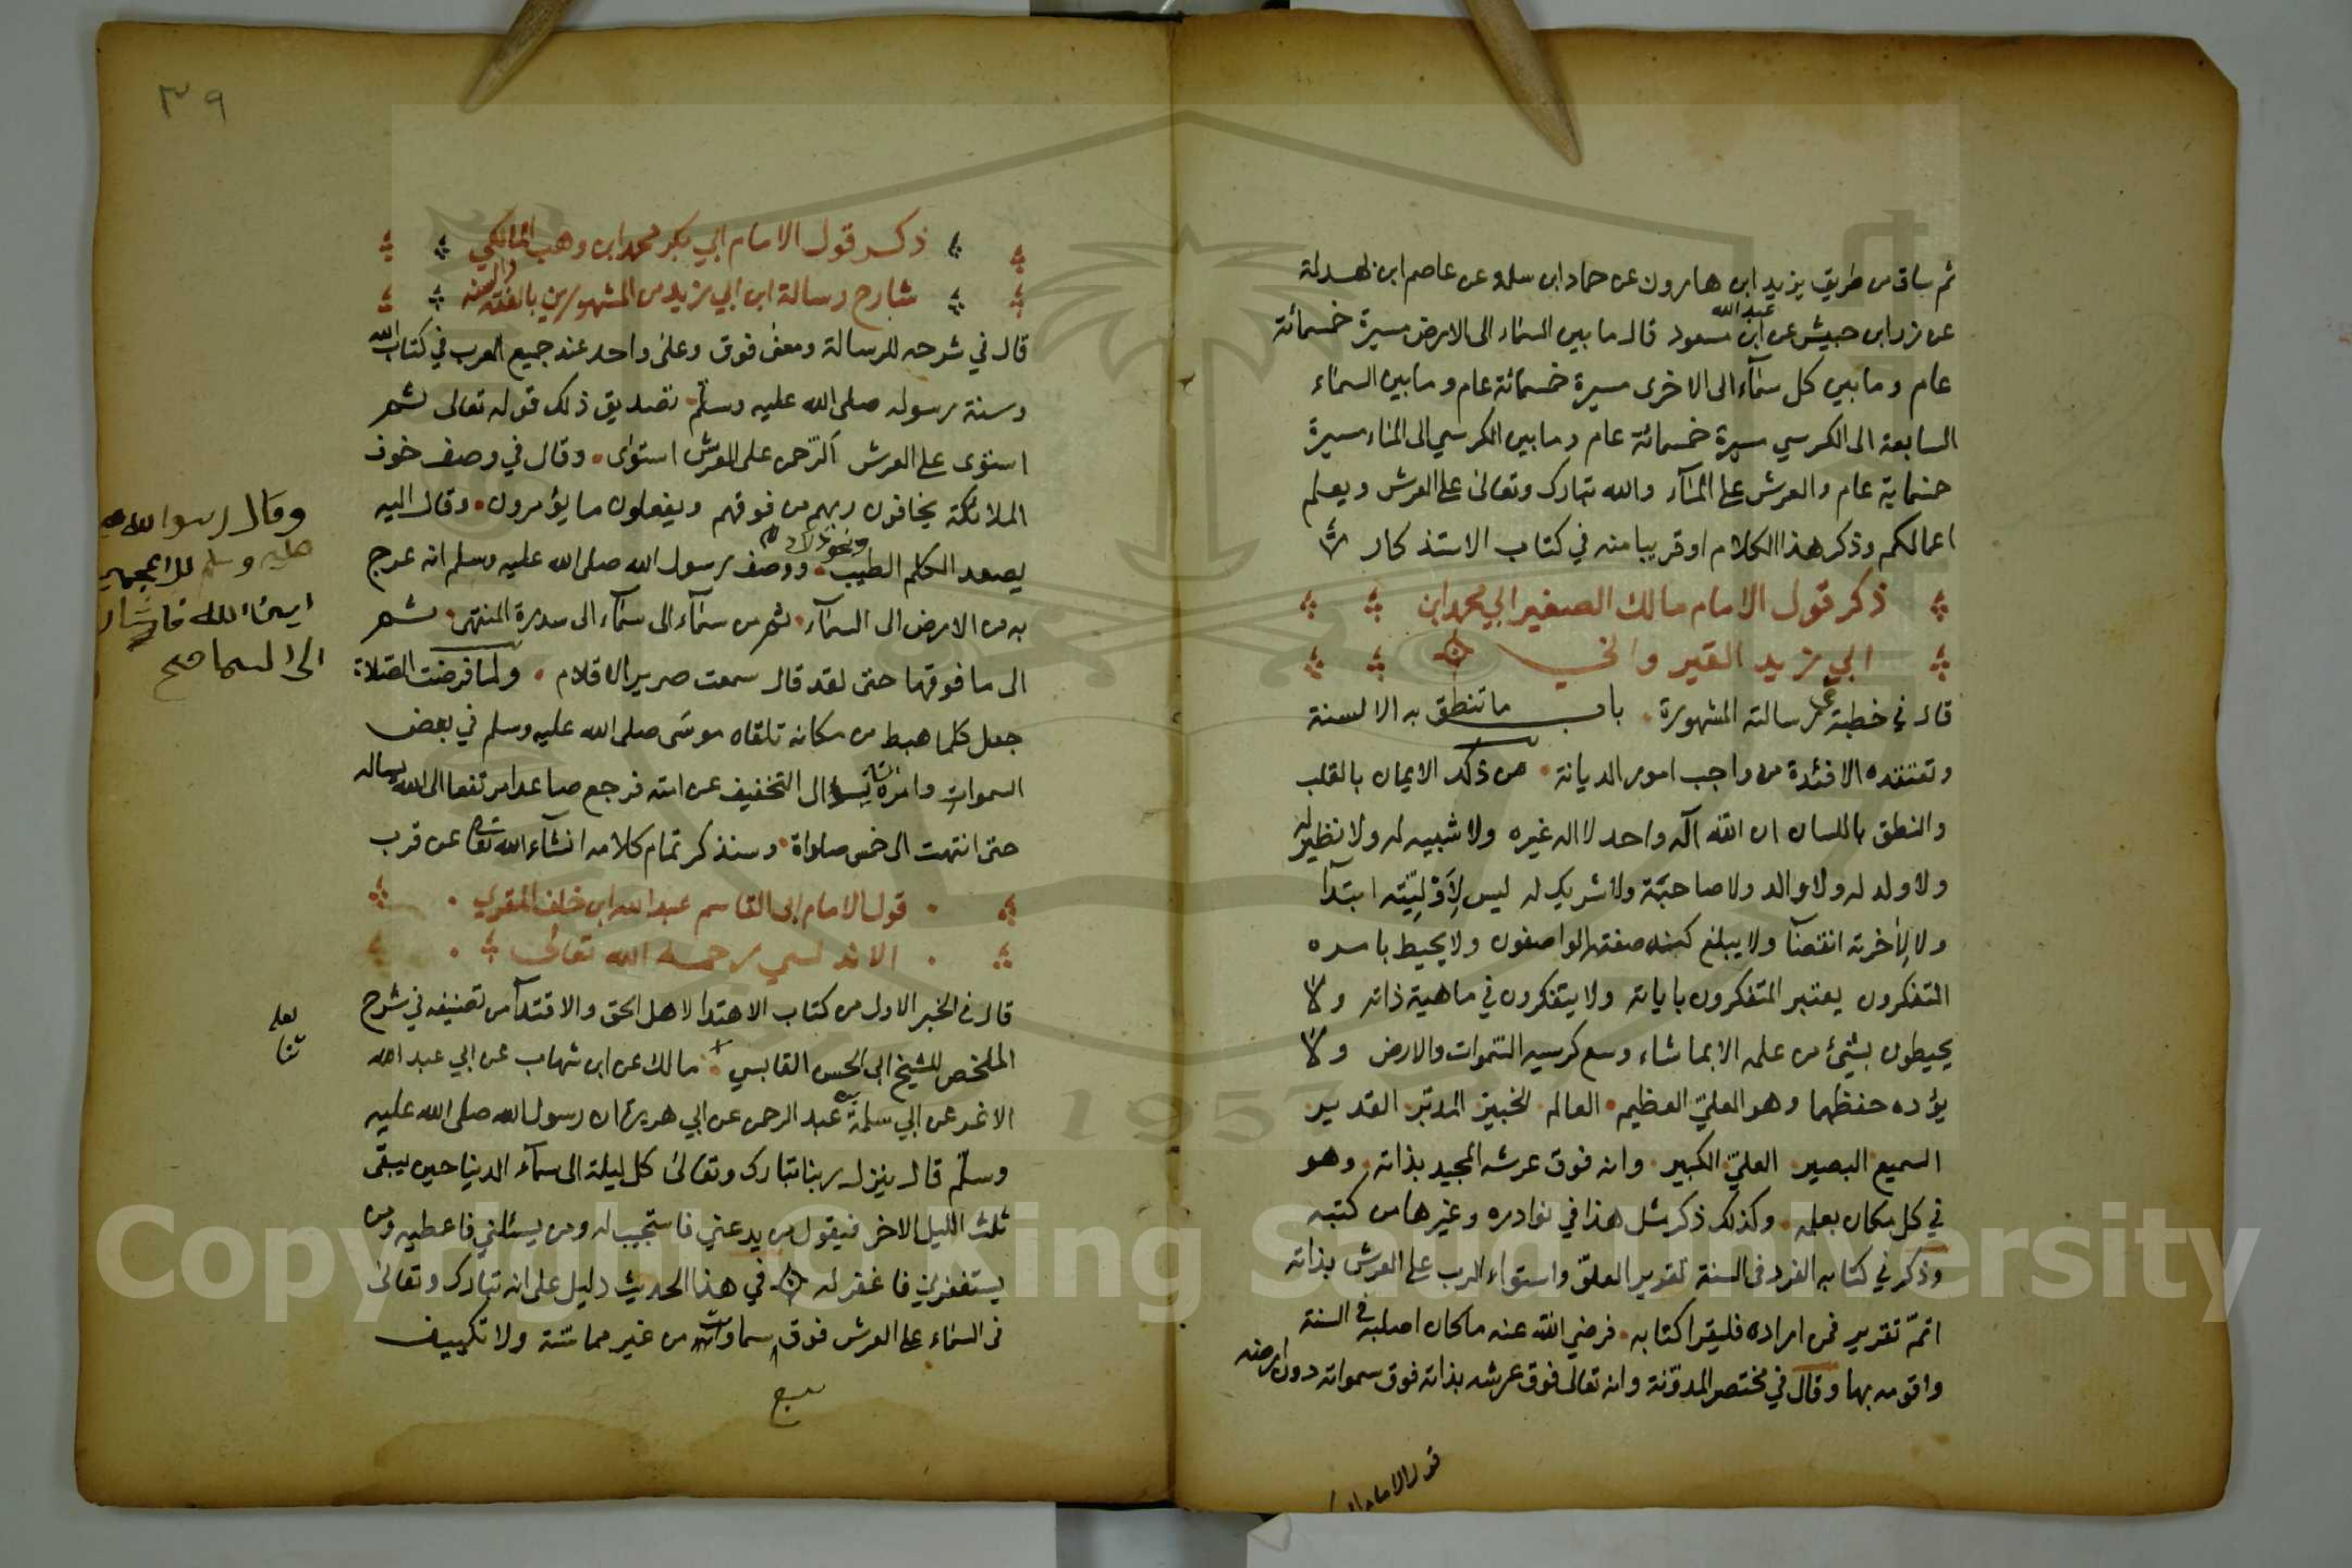 ثم ساق من طريق يزيد ابن هارون عن حماد ابن سلمة عن عاصم ابن بهدلة
عن زر ابن حبيش عن عبد الله ابن مسعود قال ما بين السماء الى الارض مسيرة خمسمائة
عام وما بين كل سمآء الى الاخرى مسيرة خمسمائة عام وما بين السماء
السابعة الى الكرسي مسيرة خمسمائة عام وما بين الكرسي الى الماء مسيرة
خمسماية عام والعرش على المآء والله تبارك وتعالى على العرش ويعلم
اعمالكم وذكر هذا الكلام او قريبا منه في كتاب الاستذكار
ذكر قول الامام مالك الصغير ابي محمد ابن
ابي زيد القيرواني
قال في خطبة رسالته المشهورة باب ما تنطق به الالسنة
وتعتقده الافئدة من واجب امور الديانة من ذلك الايمان بالقلب
والنطق باللسان ان الله آله واحد لا اله غيره ولا شبيه له ولا نظير له
ولا ولد له ولا والد ولا صاحبة ولا شريك له ليس لأوليّته ابتدآ
ولا لأخرته انقضآ ولا يبلغ كنه صفته الواصفون ولا يحيط بامره
المتفكرون يعتبر المتفكرون باياته ولا يتفكرون في ماهية ذاته ولا
يحيطون بشيئ من علمه الا بما شاء وسع كرسيه السموات والارض ولا
يؤده حفظهما وهو العليّ العظيم العالم الخبير المدبّر القدير
السميع البصير العليّ الكبير وانه فوق عرشه المجيد بذاته وهو
في كل مكان بعلمه وكذلك ذكر مثل هذا في نوادره وغيرها من كتبه
وذكر في كتابه المفرد في السنة تقرير العلوّ واستواء الرب على العرش بذاته
اتمّ تقرير فمن اراده فليقرا كتابه فرضي الله عنه ما كان اصلبه في السنة
واقومه بها وقال في مختصر المدوّنة وانه تعالى فوق عرشه بذاته فوق سمواته دون ارضه
قول الامام
٣٩
ذكر قول الامام ابي بكر محمد ابن وهب المالكي
شارح رسالة ابن ابي زيد من المشهورين بالفقه والسنه
قال في شرحه للرسالة ومعنى فوق وعلى واحد عند جميع العرب في كتاب الله
وسنة رسوله صلى الله عليه وسلم تصديق ذلك قوله تعالى ثم
استوى على العرش الرّحمن على العرش استوى وقال في وصف خوف
الملائكة يخافون ربهم من فوقهم ويفعلون ما يؤمرون وقال اليه
يصعد الكلم الطيب ونحو ذلك ووصف رسول الله صلى الله عليه وسلم انه عرج
به من الارض الى السمآء ثم من سمآء الى سمآء الى سدرة المنتهى ثم
الى ما فوقها حتى لقد قال سمعت صرير الاقلام ولما فرضت الصلاة
جعل كلما هبط من مكانه تلقاه موسى صلى الله عليه وسلم في بعض
السموات وامره بسؤال التخفيف عن امته فرجع صاعدا مرتفعا الى الله يساله
حتى انتهت الى خمس صلواة وسنذكر تمام كلامه انشآء الله تعالى عن قرب
قول الامام ابى القاسم عبد الله ابن خلف المقري
الاندلسي رحمه الله تعالى
قال في الخبر الاول من كتاب الاهتدا لاهل الحق والاقتدآ من تصنيفه في شرح
الملخص للشيخ ابى الحسن القابسي مالك عن ابن شهاب عن ابي عبد الله
الاغر عن ابي سلمة عبد الرحمن عن ابي هريرة ان رسول الله صلى الله عليه
وسلّم قال ينزل ربنا تبارك وتعالى كل ليلة الى سمآء الدنيا حين يبقى
ثلث الليل الاخر فيقول من يدعني فاستجيب له ومن يسئلني فاعطيه ومن
يستغفرني فاغفر له في هذا الحديث دليل على انه تبارك وتعالى
في السماء على العرش فوق سماوات من غير مماسّة ولا تكييف
وقال رسول الله
عليه وسلم للاعجميه
اين الله فاشار
الى السما صح